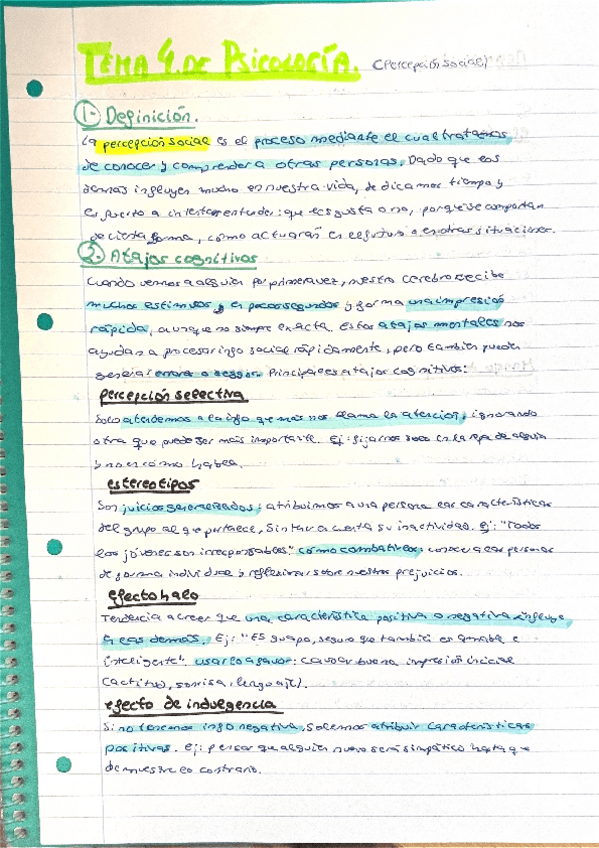 TEMA 4. DE PSICOLOGÍA. (Percepción social)
1- Definición.
La percepción social es el proceso mediante el cual tratamos
de conocer y comprender a otras personas. Dado que los
demás influyen mucho en nuestra vida, dedicamos tiempo y
esfuerzo a intentar entender: que les gusta o no, porque se comportan
de cierta forma, cómo actuarán en el futuro o en otras situaciones.
2. Atajos cognitivos
Cuando vemos a alguien por primera vez, nuestro cerebro recibe
muchos estimulos en pocos segundos y forma una impresión
rápida, aunque no siempre exacta. Estos atajos mentales nos
ayudan a procesar info social rápidamente, pero también pueden
generar errores o sesgos. Principales atajos cognitivos:
percepción selectiva
Solo atendemos a la info que más nos llama la atención, ignorando
otra que puede ser más importante. Ej: fijarnos solo en la ropa de alguien
y no en cómo habla.
estereotipos
Son juicios generalizados; atribuimos a una persona las características
del grupo al que pertenece, sin tener en cuenta su Ej: "Todos
los jóvenes son irresponsables." cómo combatirlos: conocer a las personas
de forma individual y reflexionar sobre nuestros prejuicios.
efecto halo
Tendencia a creer que una característica positiva o negativa influye
a las demás. Ej: "Es guapo, seguro que también es amable e
inteligente". usarlo a favor: causar buena impresión inicial
(actitud, sonrisa, lenguaje).
efecto de indulgencia
Si no tenemos info negativa, solemos atribuir características
positivas. Ej: pensar que alguien nuevo será simpático hasta que
demuestre lo contrario.